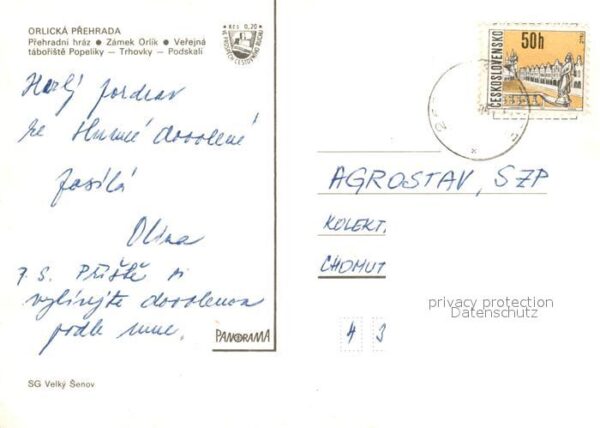 ORLICKÁ PŘEHRADA
Přehradní hráz ● Zámek Orlík ● Veřejná
tábořiště Popelíky — Trhovky — Podskalí
KČS 0,20
Hezký pozdrav
ze slunné dovolené
zasílá
Olina
P. S. Příště si
vybírejte dovolenou
podle mne.
PANORAMA
SG Velký Šenov
50h
ČESKOSLOVENSKO
TELČ
AGROSTAV, SZP
KOLEKT.
CHOMUT
4 3
privacy protection
Datenschutz